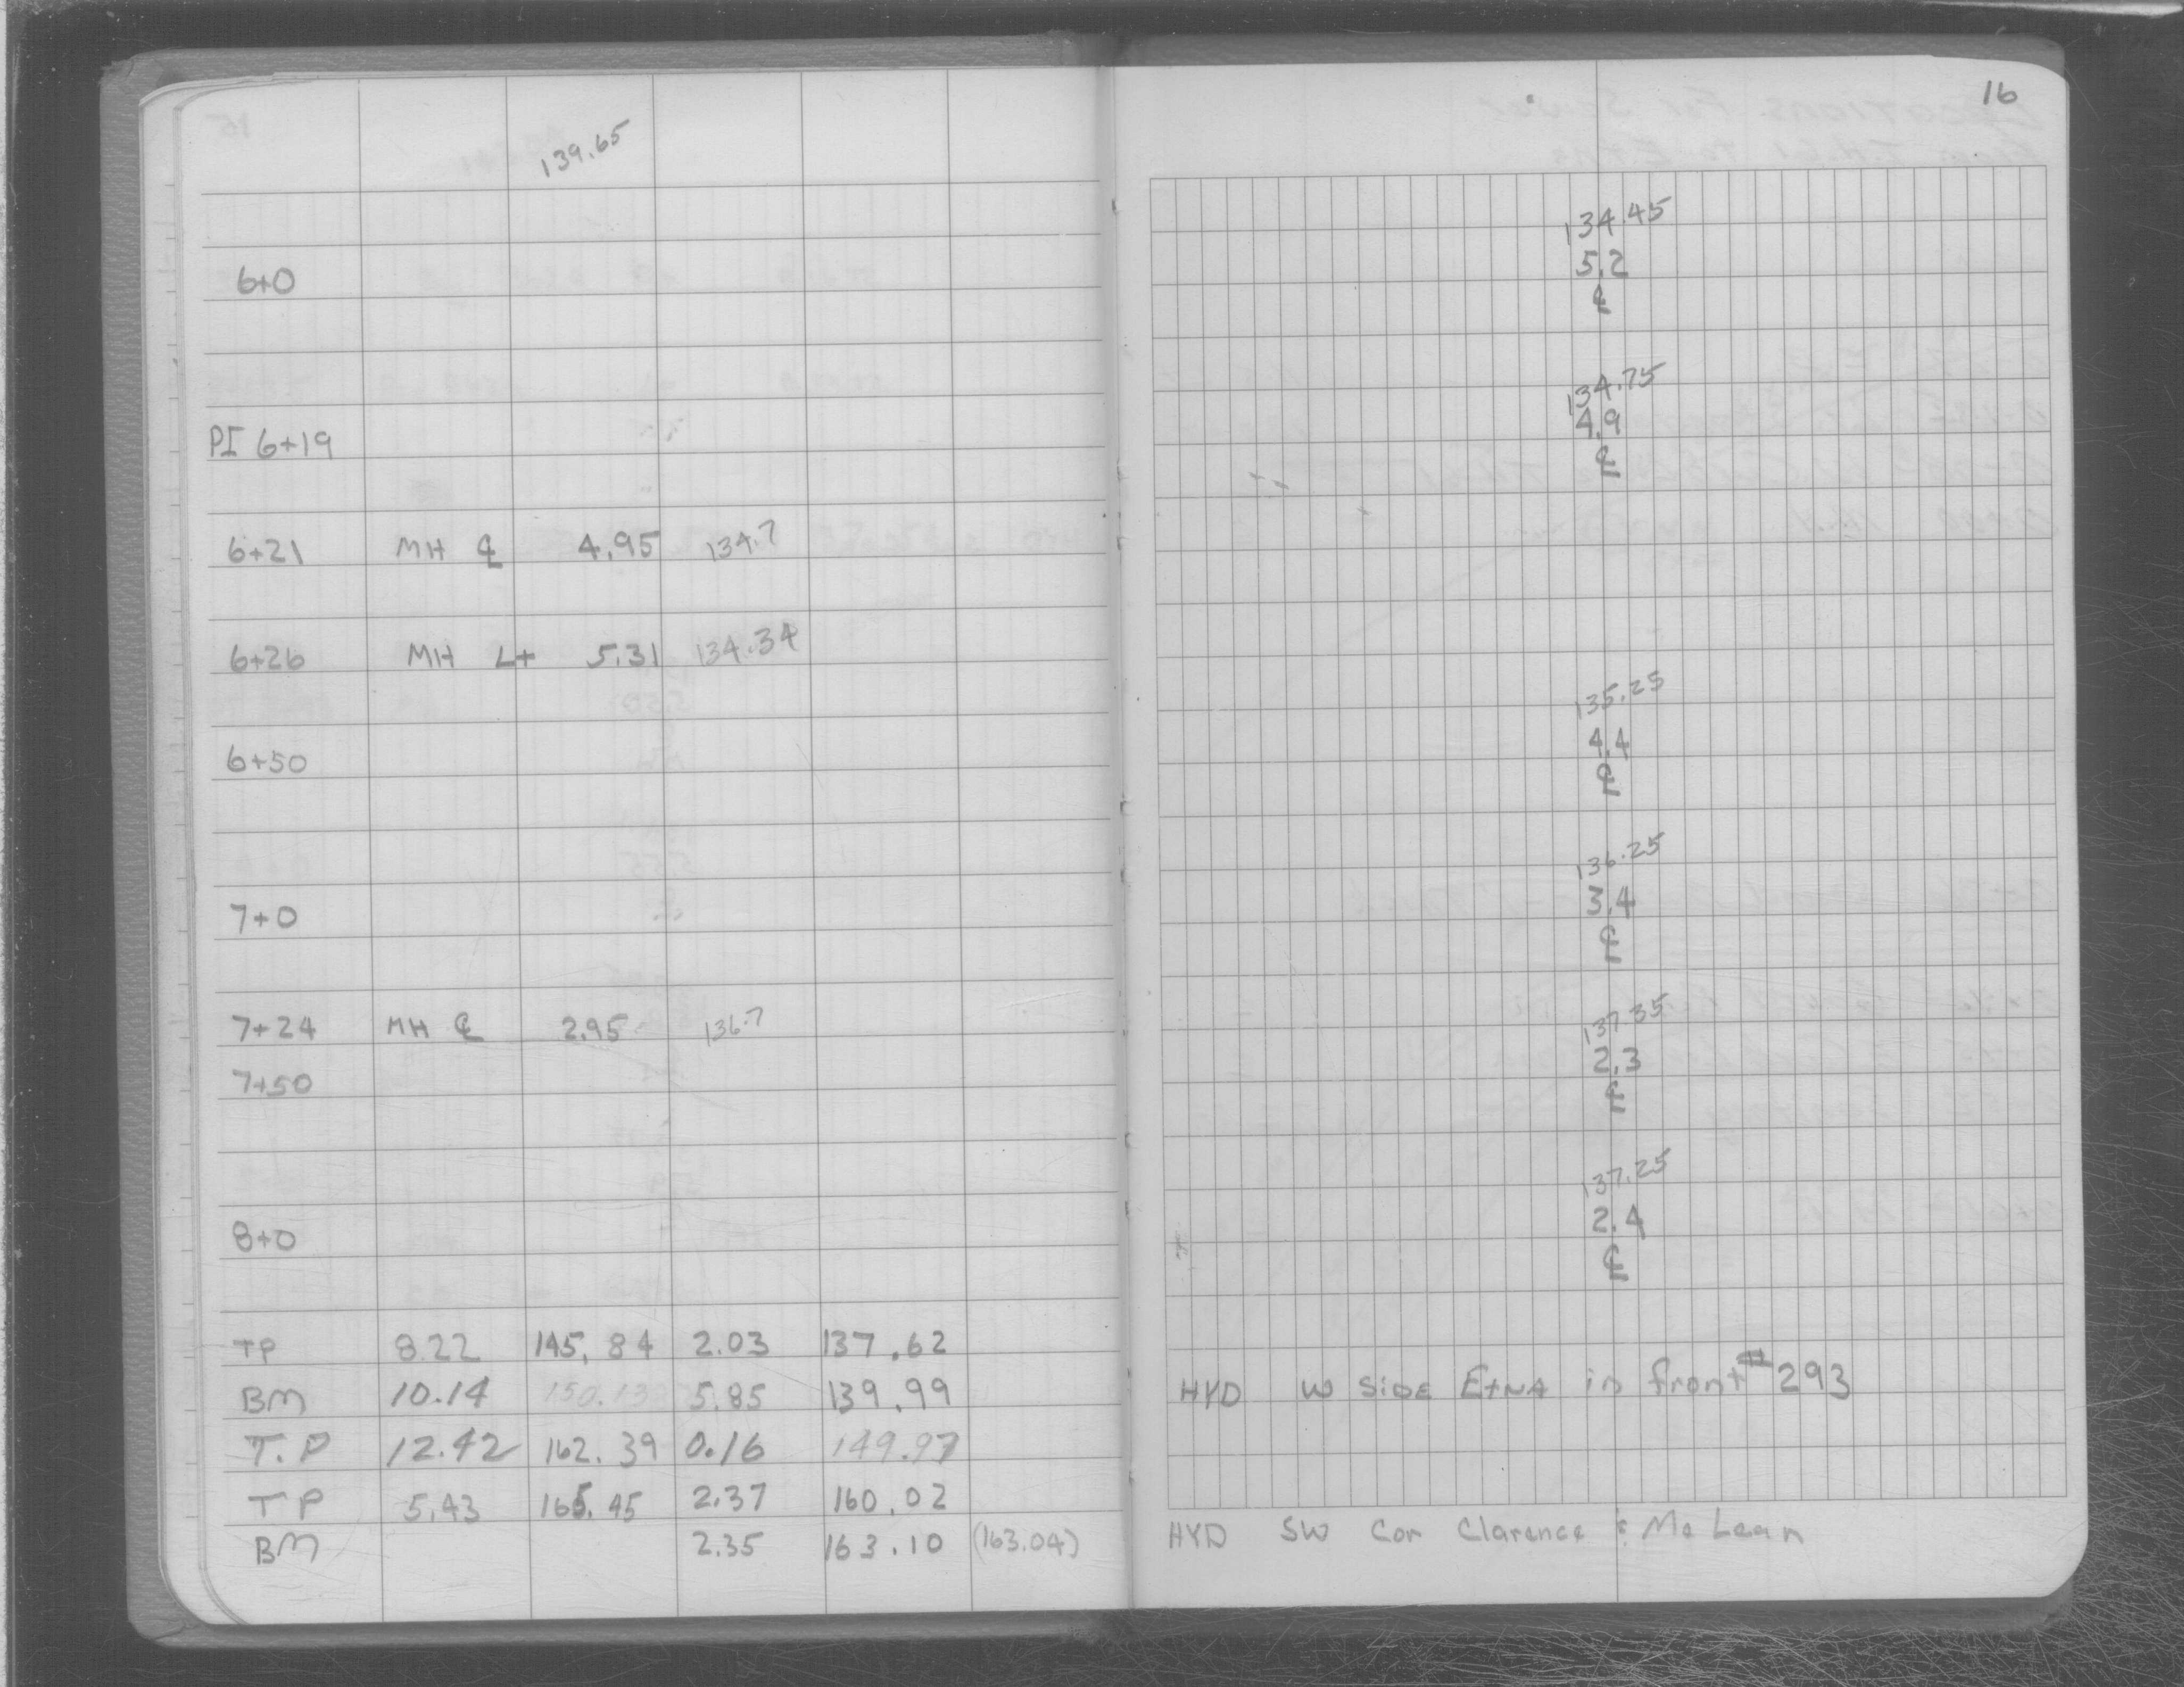 139.65
6+0
PI 6+19
6+21 MH ℄ 4.95 134.7
6+26 MH Lt 5.31 134.34
6+50
7+0
7+24 MH ℄ 2.95 136.7
7+50
8+0
TP 8.22 145.84 2.03 137.62
BM 10.14 150.13 5.85 139.99
T.P 12.42 162.39 0.16 149.97
TP 5.43 165.45 2.37 160.02
BM 2.35 163.10 (163.04)
16
134.45
5.2
℄
134.75
4.9
℄
135.25
4.4
℄
136.25
3.4
℄
137.35
2.3
℄
137.25
2.4
℄
HYD W SIDE EtNA in front #293
HYD SW Cor Clarence & McLean